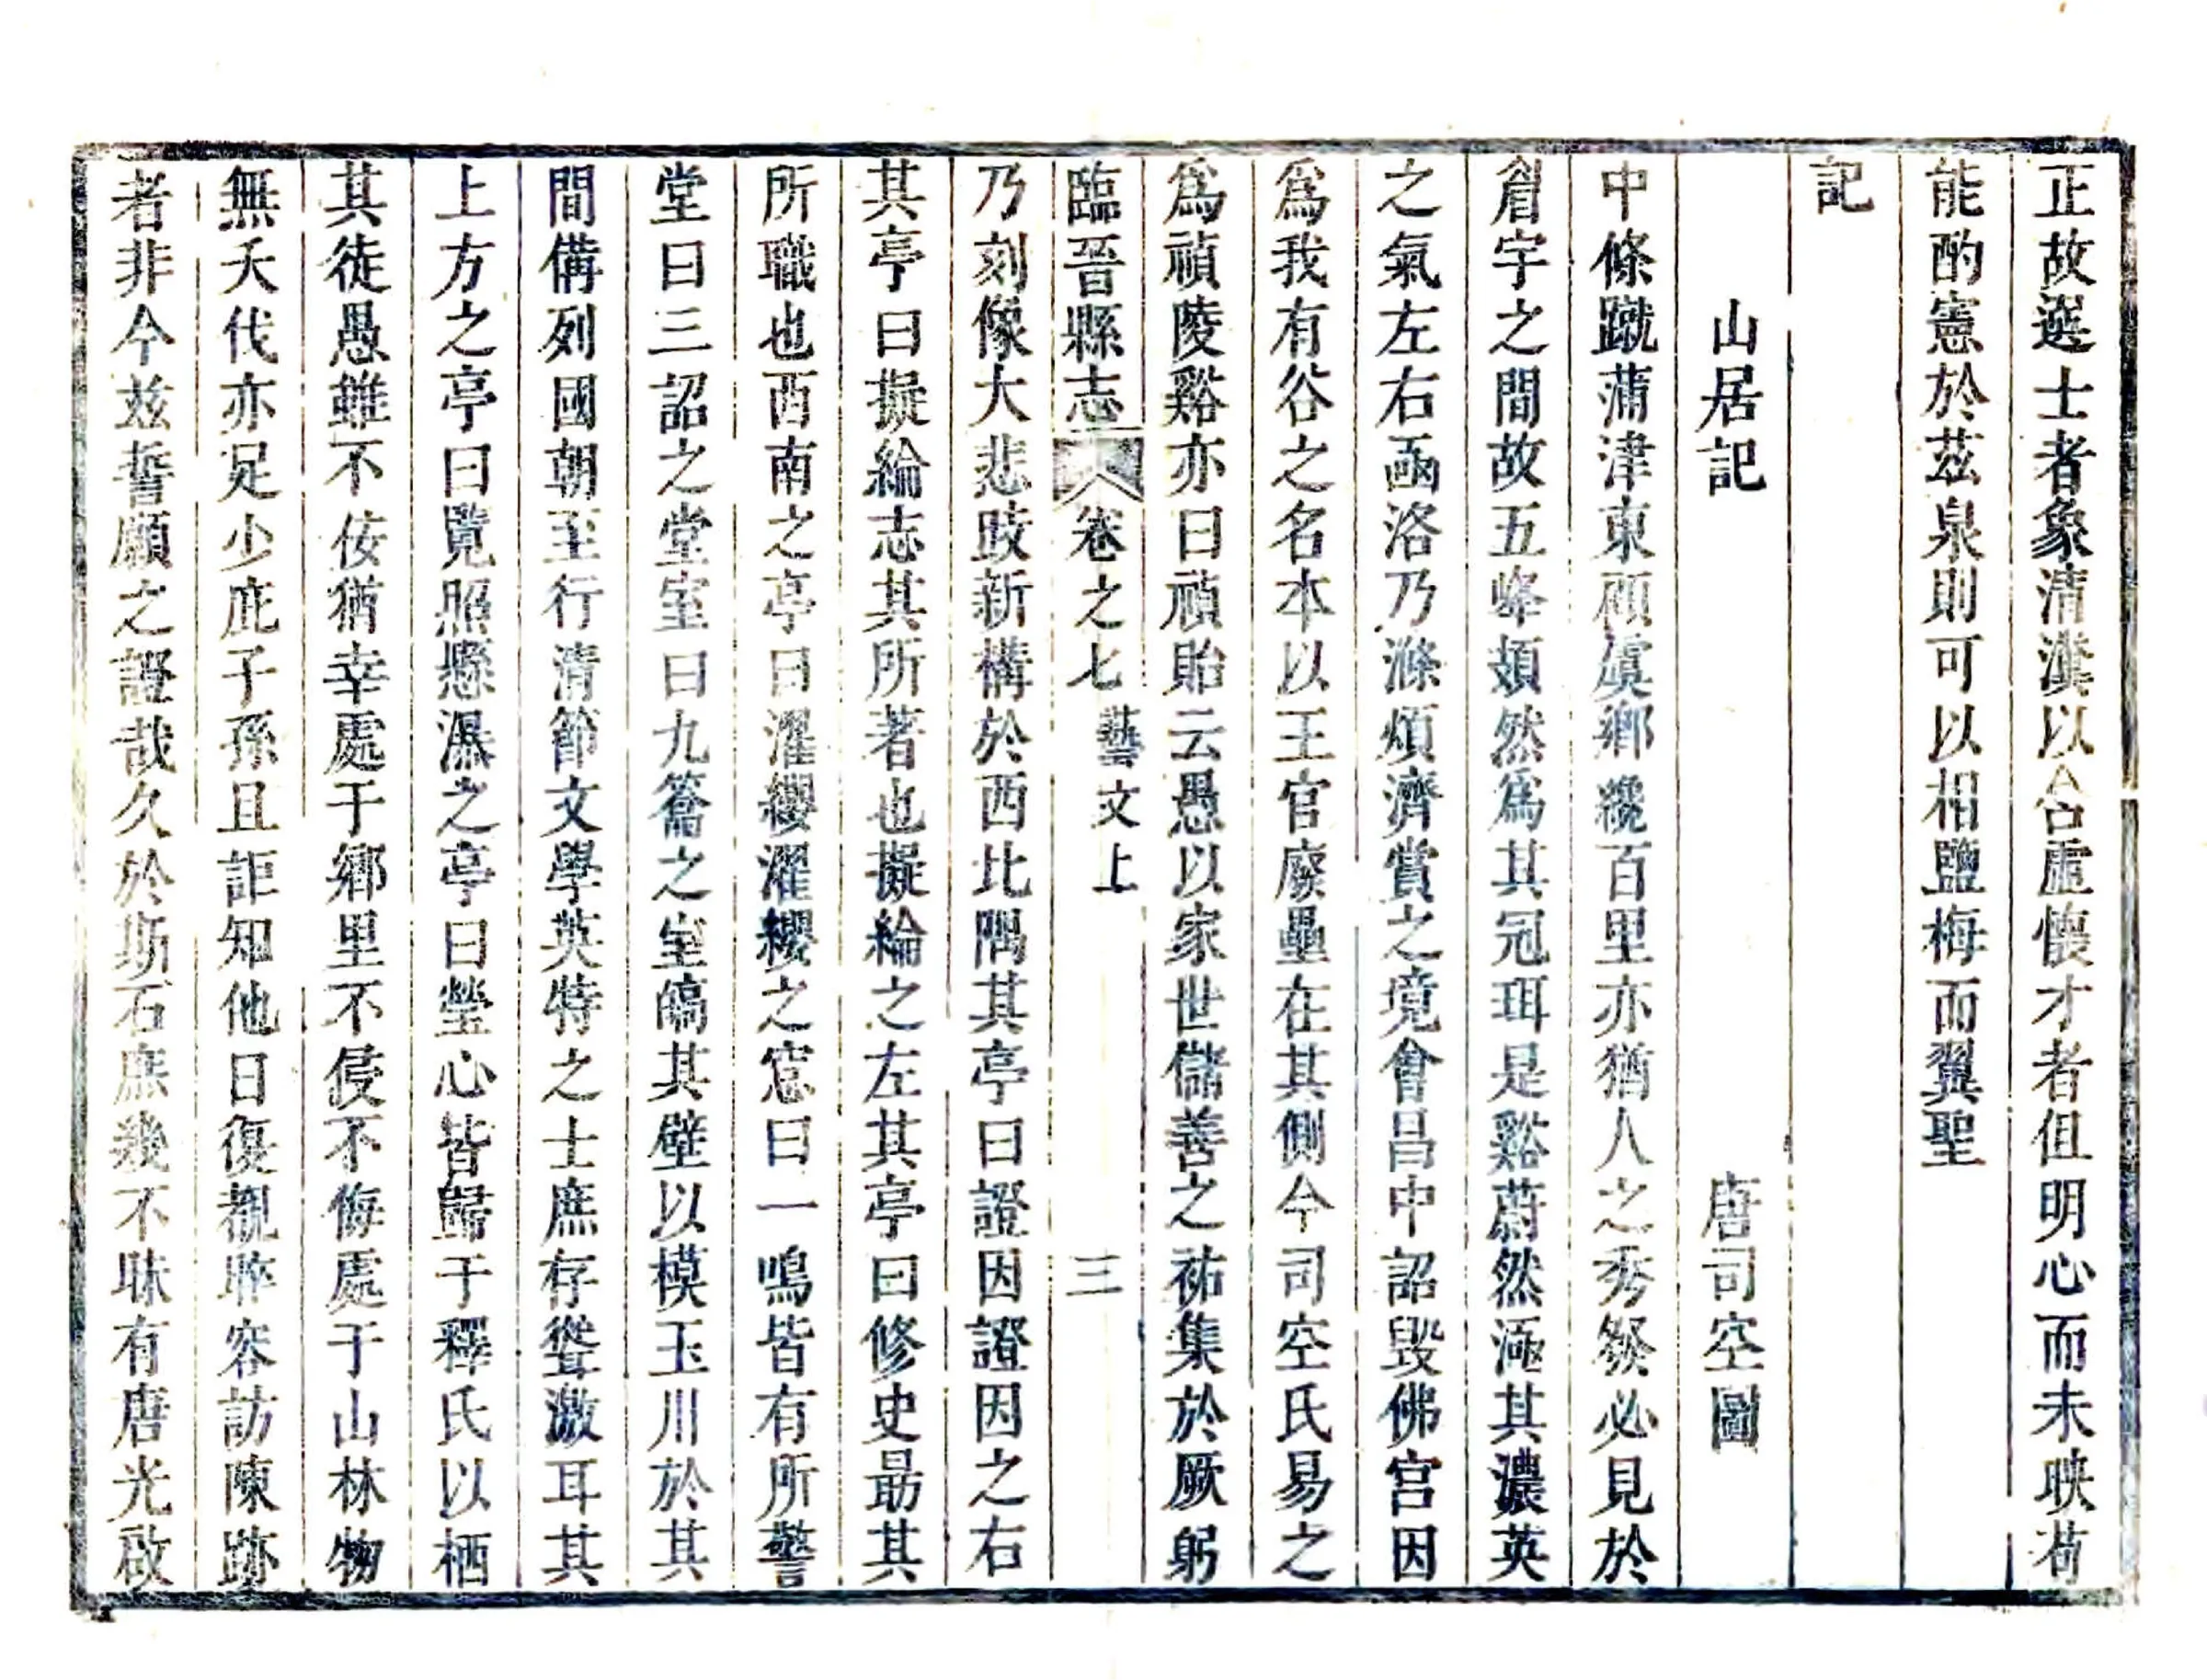 正故選士者象清漢以合虛懷才者但明心而未映苟
能酌憲於茲泉則可以相鹽梅而翼聖
記
山居記 唐司空圖
中條蹴蒲津東顧虞鄉纔百里亦猶人之秀發必見於
眉宇之間故五峰頍然為其冠珥是谿蔚然涵其濃英
之氣左右函洛乃滌煩濟賞之境會昌中詔毀佛宮因
為我有谷之名本以王官廢壘在其側今司空氏易之
為禎陵谿亦曰禎貽云愚以家世儲善之祐集於厥躬
臨晉縣志 卷之七 藝文上 三
乃刻像大悲跂新構於西北隅其亭曰證因證因之右
其亭曰擬綸志其所著也擬綸之左其亭曰修史勗其
所職也西南之亭曰濯纓濯纓之窓曰一鳴皆有所警
堂曰三詔之堂室曰九籥之室皜其壁以模玉川於其
間備列國朝至行清節文學英特之士庶存聳激耳其
上方之亭曰覽照懸瀑之亭曰瑩心皆歸于釋氏以栖
其徒愚雖不佞猶幸處于鄉里不侵不侮處于山林物
無夭伐亦足少庇子孫且詎知他日復覩睟容訪陳跡
者非今茲誓願之證哉久於斯石庶幾不昧有唐光啟